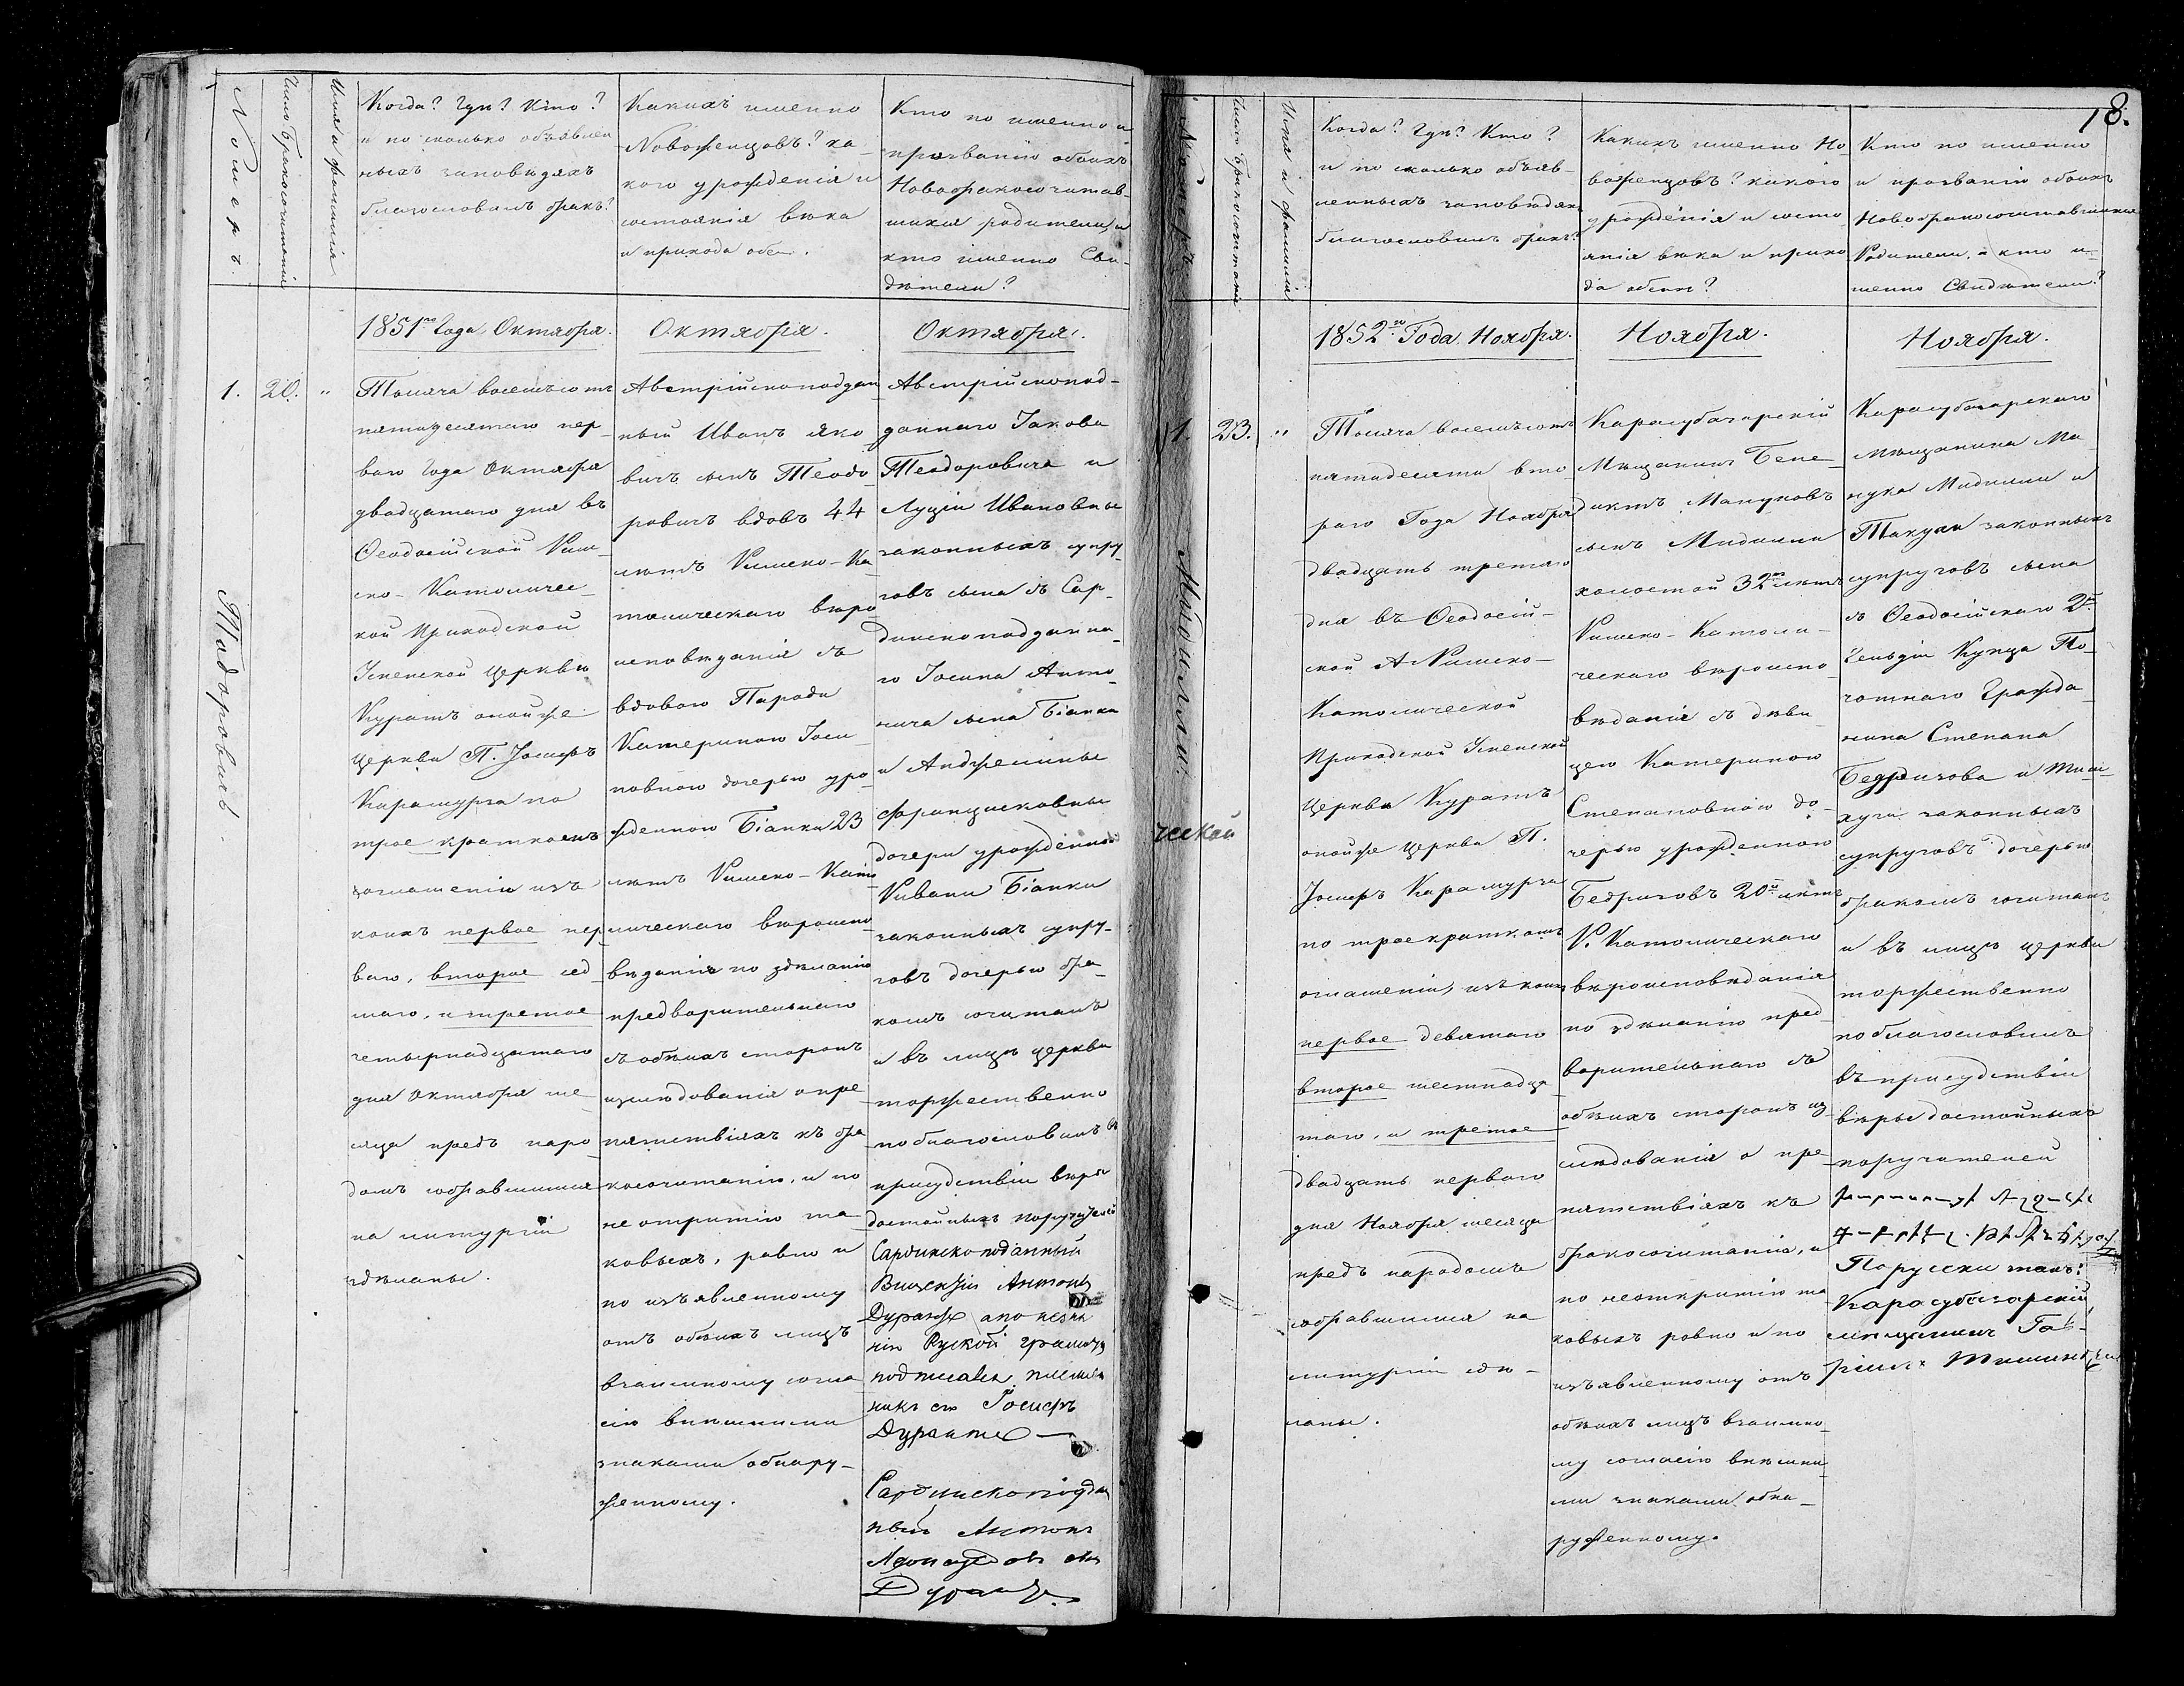 Номеръ.
Число бракосочитанія
Имя и фамилія
Когда? Гдѣ? Кто?
и по сколько объявлен
ныхъ заповѣдяхъ
благословилъ бракъ?
Какихъ именно
Новоженцовъ? ка-
кого урожденія и
состоянія вѣка
и прихода обои.
Кто по именно и
прозванію обоихъ
Новобракосочитав-
шихся родители, и
кто именно Сви-
дѣтели?
1851го Года Октября.
Октября.
Октября.
1.
20.
"
Тадоровичъ.
Тысяча восемьсотъ
пятидесятаго пер-
ваго Года Октября
двадцатаго дня въ
Ѳеодосійской Рим-
ско-Католичес-
кой Приходской
Успенской Церкви
Куратъ оной же
Церкви П. Іосифъ
Карамурза по
трое кратномъ
оглашеніи изъ
коихъ первое пер-
ваго, второе сед
маго, и третое
четырнадцатаго
дня Октября ме-
сяца предъ наро
домъ собравшимся
на литургіи
здѣланы.
Австрійскоподдан
ный Иванъ Яко
вичъ сынъ Теодо
ровичъ вдовъ 44
лѣтъ Римско-Ка
толическаго вѣро
исповѣданія съ
вдовою Пароди
Катериною Іоси
повною дочерью уро
жденною Біанки 23
лѣтъ Римско-Като
лическаго вѣроиспо
вѣданія по здѣланію
предварительнаго
съ обѣихъ сторонъ
изслѣдованія о пре
пятствіяхъ къ бра
косочитанію, и по
не открытію та
ковыхъ, равно и
по изъявленному
отъ обѣихъ лицъ
взаимному согла
сію внѣшними
знаками обнару-
женному.
Австрійскопод-
даннаго Іакова
Теодоровича и
Луціи Ивановны
законныхъ супру
говъ сына съ Сар-
динскоподданна-
го Іосипа Анто-
нича сына Біанки
и Анджелины
Францисковны
дочери урожденной
Ривани Біанки
законныхъ супру-
говъ дочерью бра-
комъ сочиталъ
и въ лицѣ церкви
торжественно
поблагословилъ въ
присудствіи вѣры
достойныхъ поручителей
Сардинско поданный
Вицензій Антонъ
Дуранте а по незна
нію Руской грамоты
подписался племен
никъ его Іосифъ
Дуранте
Сардинскоподдан
ный Антонъ
Дуранте.
18.
Номеръ
Число бракосочитанія
Имя и фамилія
Когда? Гдѣ? Кто?
и по сколько объяв-
ленныхъ заповѣдяхъ
благословилъ бракъ?
Какихъ именно Но-
воженцовъ? какого
урожденія и состо
янія вѣка и прихо
да обоихъ?
Кто по именно
и прозванію обоихъ
Новобракосочитавшихся
Родители, а кто и-
менно Свидѣтели?
1852го Года Ноября.
Ноября.
Ноября.
1.
23.
"
ческой
Тысяча восемьсотъ
пятидесяти вто
раго Года Ноября
двадцать третьяго
дня въ Ѳеодосій-
ской А Римско-
Католической
Приходской Успенской
Церкви Куратъ
оной же Церкви П.
Іосифъ Карамурза
по троекратномъ
оглашеніи, изъ коихъ
первое девятаго
второе шестнадца
таго, и третое
двадцать перваго
дня Ноября месяца
предъ народомъ
собравшимся на
литургіи сдѣ-
ланы.
Карасубазарскій
Мѣщанинъ Бене-
диктъ Мануковъ
сынъ
холостой 32хъ лѣтъ
Римско-Католи-
ческаго вѣроиспо
вѣданія съ дѣви-
цею Катериною
Степановною до-
черью урожденною
Бедриговъ 20и лѣтъ
Р. Католическаго
вѣроисповѣданія
по здѣланію пред
варительнаго съ
обѣихъ сторонъ из-
слѣдованія о пре-
пятствіяхъ къ
бракосочитанію, и
по неоткрытію та
ковыхъ равно и по
изъявленному отъ
обѣихъ лицъ взаимно
му согласію внѣшни
ми знаками обна-
руженному.
Карасубазарскаго
мѣщанина Ма
нука и
законныхъ
супруговъ сына
съ Ѳеодосійскаго 2й
Гильдіи Купца По-
чотнаго Гражда-
нина Степана
Бедригова и
законныхъ
супруговъ дочерью
бракомъ сочиталъ
и въ лицѣ церкви
торжественно
поблагословилъ
въ присудствіи
вѣры достойныхъ
поручителей
По русски такъ:
Карасубазарскій
мѣщанинъ